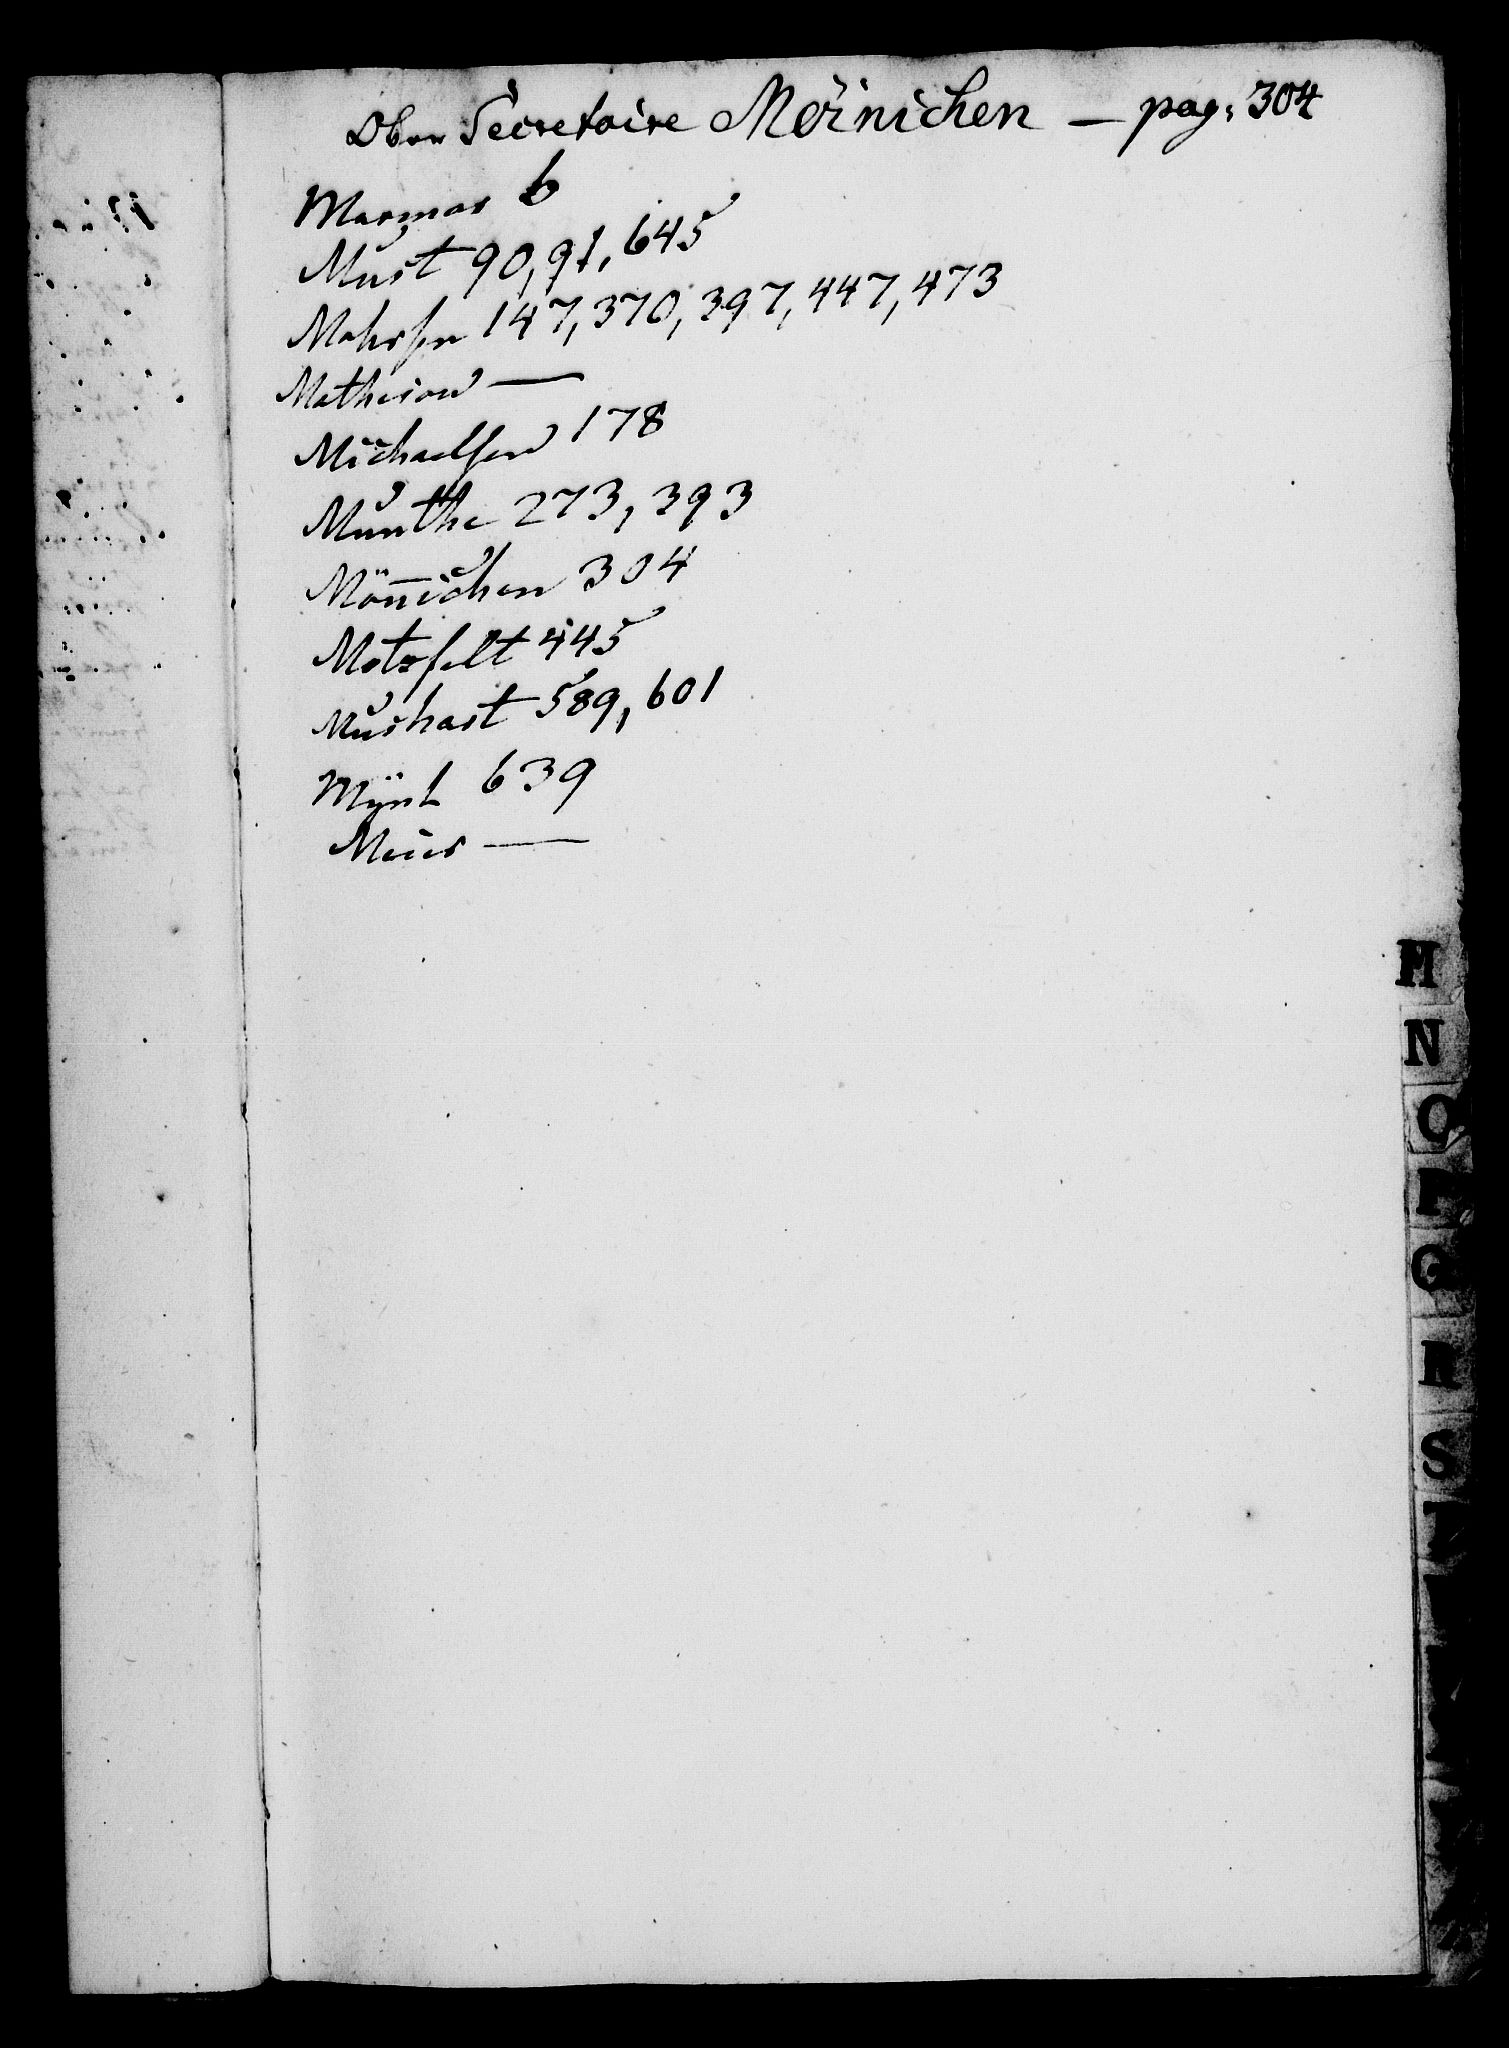 Ober Secretaire Möinichen — pag: 304
Marmor 6
Must 90, 91, 645
Mohrsen 147, 370, 397, 447, 473
Matheson —
Michaelsen 178
Munthe 273, 393
Mönichen 304
Motzfelt 445
Mushart 589, 601
Mÿnt 639
Meier —
M
N
O
P
Q
R
S
T